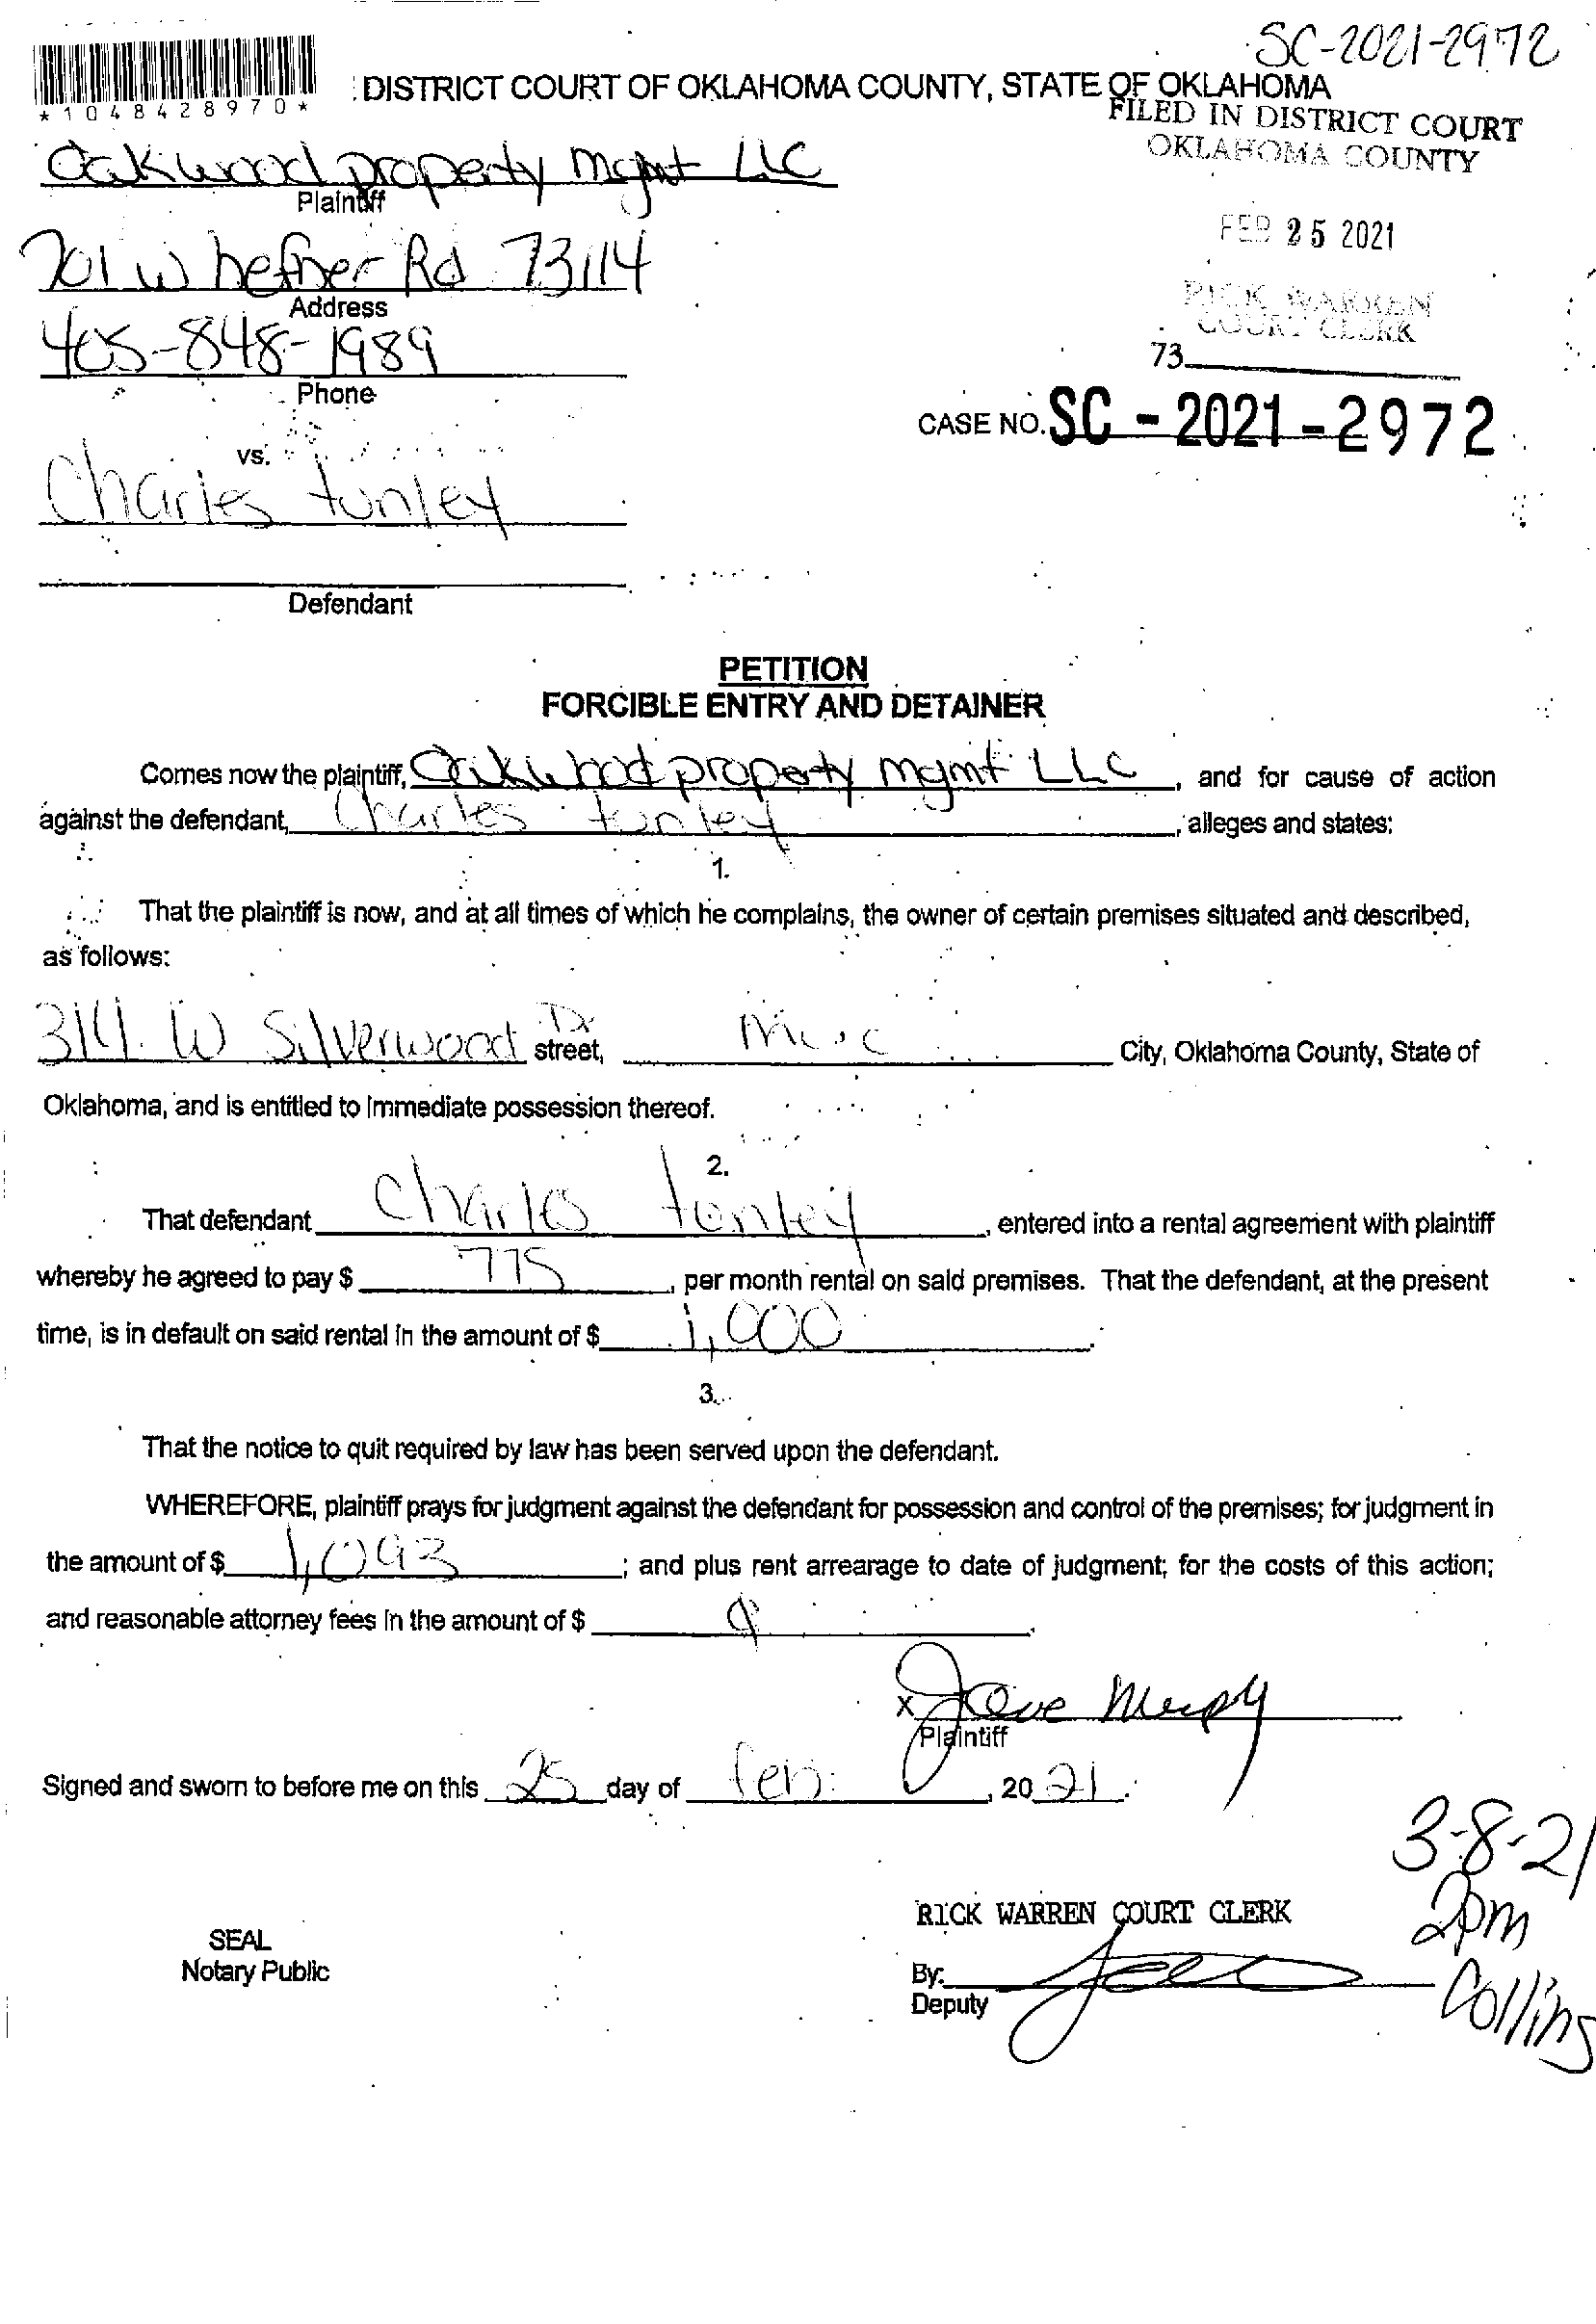 SC-2021-2972
*1048428970*
DISTRICT COURT OF OKLAHOMA COUNTY, STATE OF OKLAHOMA
FILED IN DISTRICT COURT
OKLAHOMA COUNTY
Oakwood property mgmt LLC
Plaintiff
FEB 25 2021
701 W hefner Rd 73114
Address
RICK WARREN
COURT CLERK
405-848-1989
73
Phone
CASE NO. SC-2021-2972
vs.
Charles tunley
Defendant
PETITION
FORCIBLE ENTRY AND DETAINER
Comes now the plaintiff, Oakwood property mgmt LLC, and for cause of action
against the defendant, Charles tunley, alleges and states:
1.
That the plaintiff is now, and at all times of which he complains, the owner of certain premises situated and described,
as follows:
314 W Silverwood Dr street, City, Oklahoma County, State of
Oklahoma, and is entitled to immediate possession thereof.
2.
That defendant Charles tunley, entered into a rental agreement with plaintiff
whereby he agreed to pay $ 775, per month rental on said premises. That the defendant, at the present
time, is in default on said rental in the amount of $ 1,000.
3.
That the notice to quit required by law has been served upon the defendant.
WHEREFORE, plaintiff prays for judgment against the defendant for possession and control of the premises; for judgment in
the amount of $ 1,093; and plus rent arrearage to date of judgment; for the costs of this action;
and reasonable attorney fees in the amount of $
X
Plaintiff
Signed and sworn to before me on this 25 day of feb, 2021.
3-8-21
2pm
Collins
RICK WARREN COURT CLERK
SEAL
Notary Public
By:
Deputy